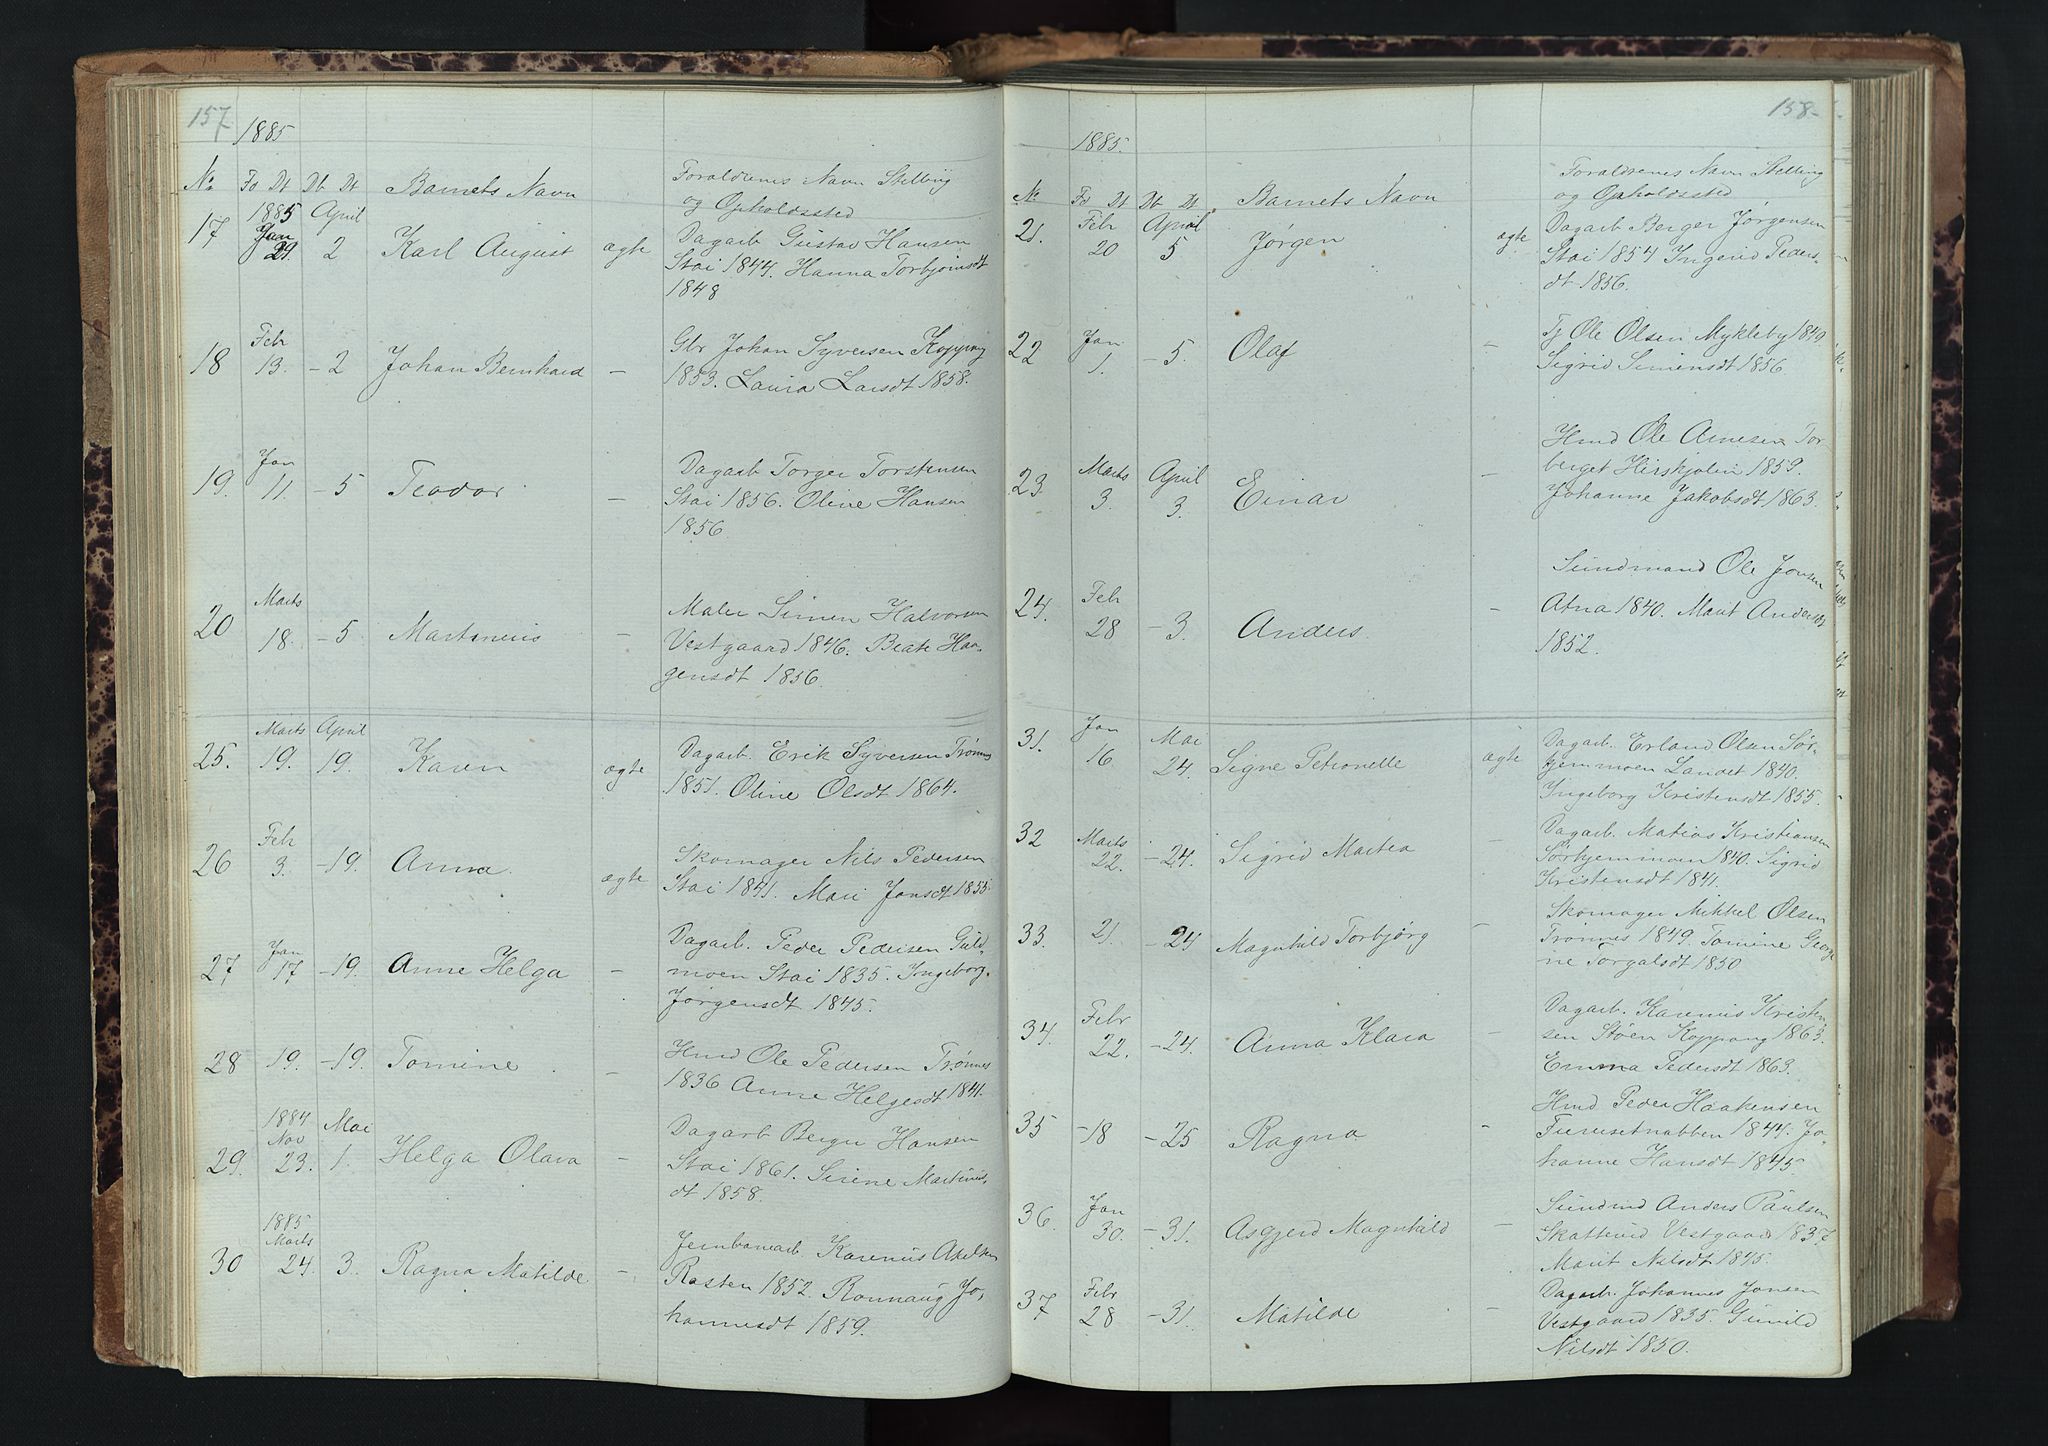 157
1885
No Fd Dt Db Dt Barnets Navn Forældrenes Navn Stelling
og Opholdssted
17 1885 Jan 29. April 2 Karl August ægte Dagarb Gustav Hansen
Stai 1844. Hanna Torbjörnsdt
1848
18 Feb 13. - 2 Johan Bernhard - Gbr Johan Syversen Koppang
1853. Laura Larsdt 1858.
19. Jan 11. - 5 Teodor - Dagarb Torger Torstensen
Stai 1856. Oline Hansen
1856
20 Marts 18. - 5 Martinius - Maler Simen Halvorsen
Vestgaard 1846. Beate Haa-
gensdt 1856.
25. Marts 19. April 19. Karen ægte Dagarb. Erik Syversen Trønnes
1851. Oline Olsdt 1864.
26 Feb 3. - 19. Anna. ægte Skomager Nils Pedersen
Stai 1841. Mari Jonsdt 1855
27 Jan 17 - 19. Anne Helga - Dagarb. Peder Pedersen Guld-
moen Stai 1835. Ingeborg
Jørgensdt 1845.
28 19. - 19. Tomine - Hmd Ole Pedersen Trønnes
1836 Anne Helgesdt 1841.
29. 1884 Nov 23. Mai 1. Helga Olava - Dagarb Berger Hansen
Stai 1861. Sirene Martinus-
dt 1858.
30 1885 Marts 24. 3. Ragna Matilde - Jernbanearb. Karenus Axelsen
Rasten 1852. Ronnaug Jo-
hannesdt 1859.
158-
1885.
No Fd Dt Db Dt Barnets Navn Forældrenes Navn Stelling
og Opholdssted
21. Feb 20 April 5 Jørgen ægte Dagarb Berger Jørgensen
Stai 1854 Ingerid Peders-
dt 1856.
22 Jan 1. - 5. Olaf - Tj Ole Olsen Mykleby 1849
Sigrid Simensdt 1856
23. Marts 3. April 3. Einar - Hmd Ole Arnesen Tor-
berget Hirskjølen 1859.
Johanne Jakobsdt 1863.
24. Feb 28 - 3. Anders. - Sundmand Ole Jonsen
Atna 1840. Marit Andersdt
1852.
31. Jan 16. Mai 24. Signe Petronelle ægte Dagarb. Erland Olsen Sør-
hjemmoen Landet 1840.
Ingeborg Kristensdt 1855.
32 Marts 22. - 24. Sigrid Martea - Dagarb. Matias Kristiansen
Sørhjemmoen 1840. Sigrid
Kristensdt 1841.
33. 21. - 24 Magnhild Torbjørg - Skomager Mikkel Olsen
Trønnes 1849. Tomine George
ne Torgalsdt 1850
34. Febr 22. - 24. Anna Klara - Dagarb. Karenus Kristen-
sen Støen Koppang 1863.
Emma Pedersdt 1863.
35 - 18 - 25 Ragna - Hmd Peder Haakensen
Furusetnabben 1844. Jo-
hanne Hansdt 1845.
36. Jan 30. - 31. Asgjerd Magnhild - Sundmd Anders Paulsen
Skatterud Vestgaard 1837
Marit Nilsdt 1845.
37 Febr 28 - 31. Matilde - Dagarb. Johannes Jonsen
Vestgaard 1835. Gunild
Nilsdt 1850.